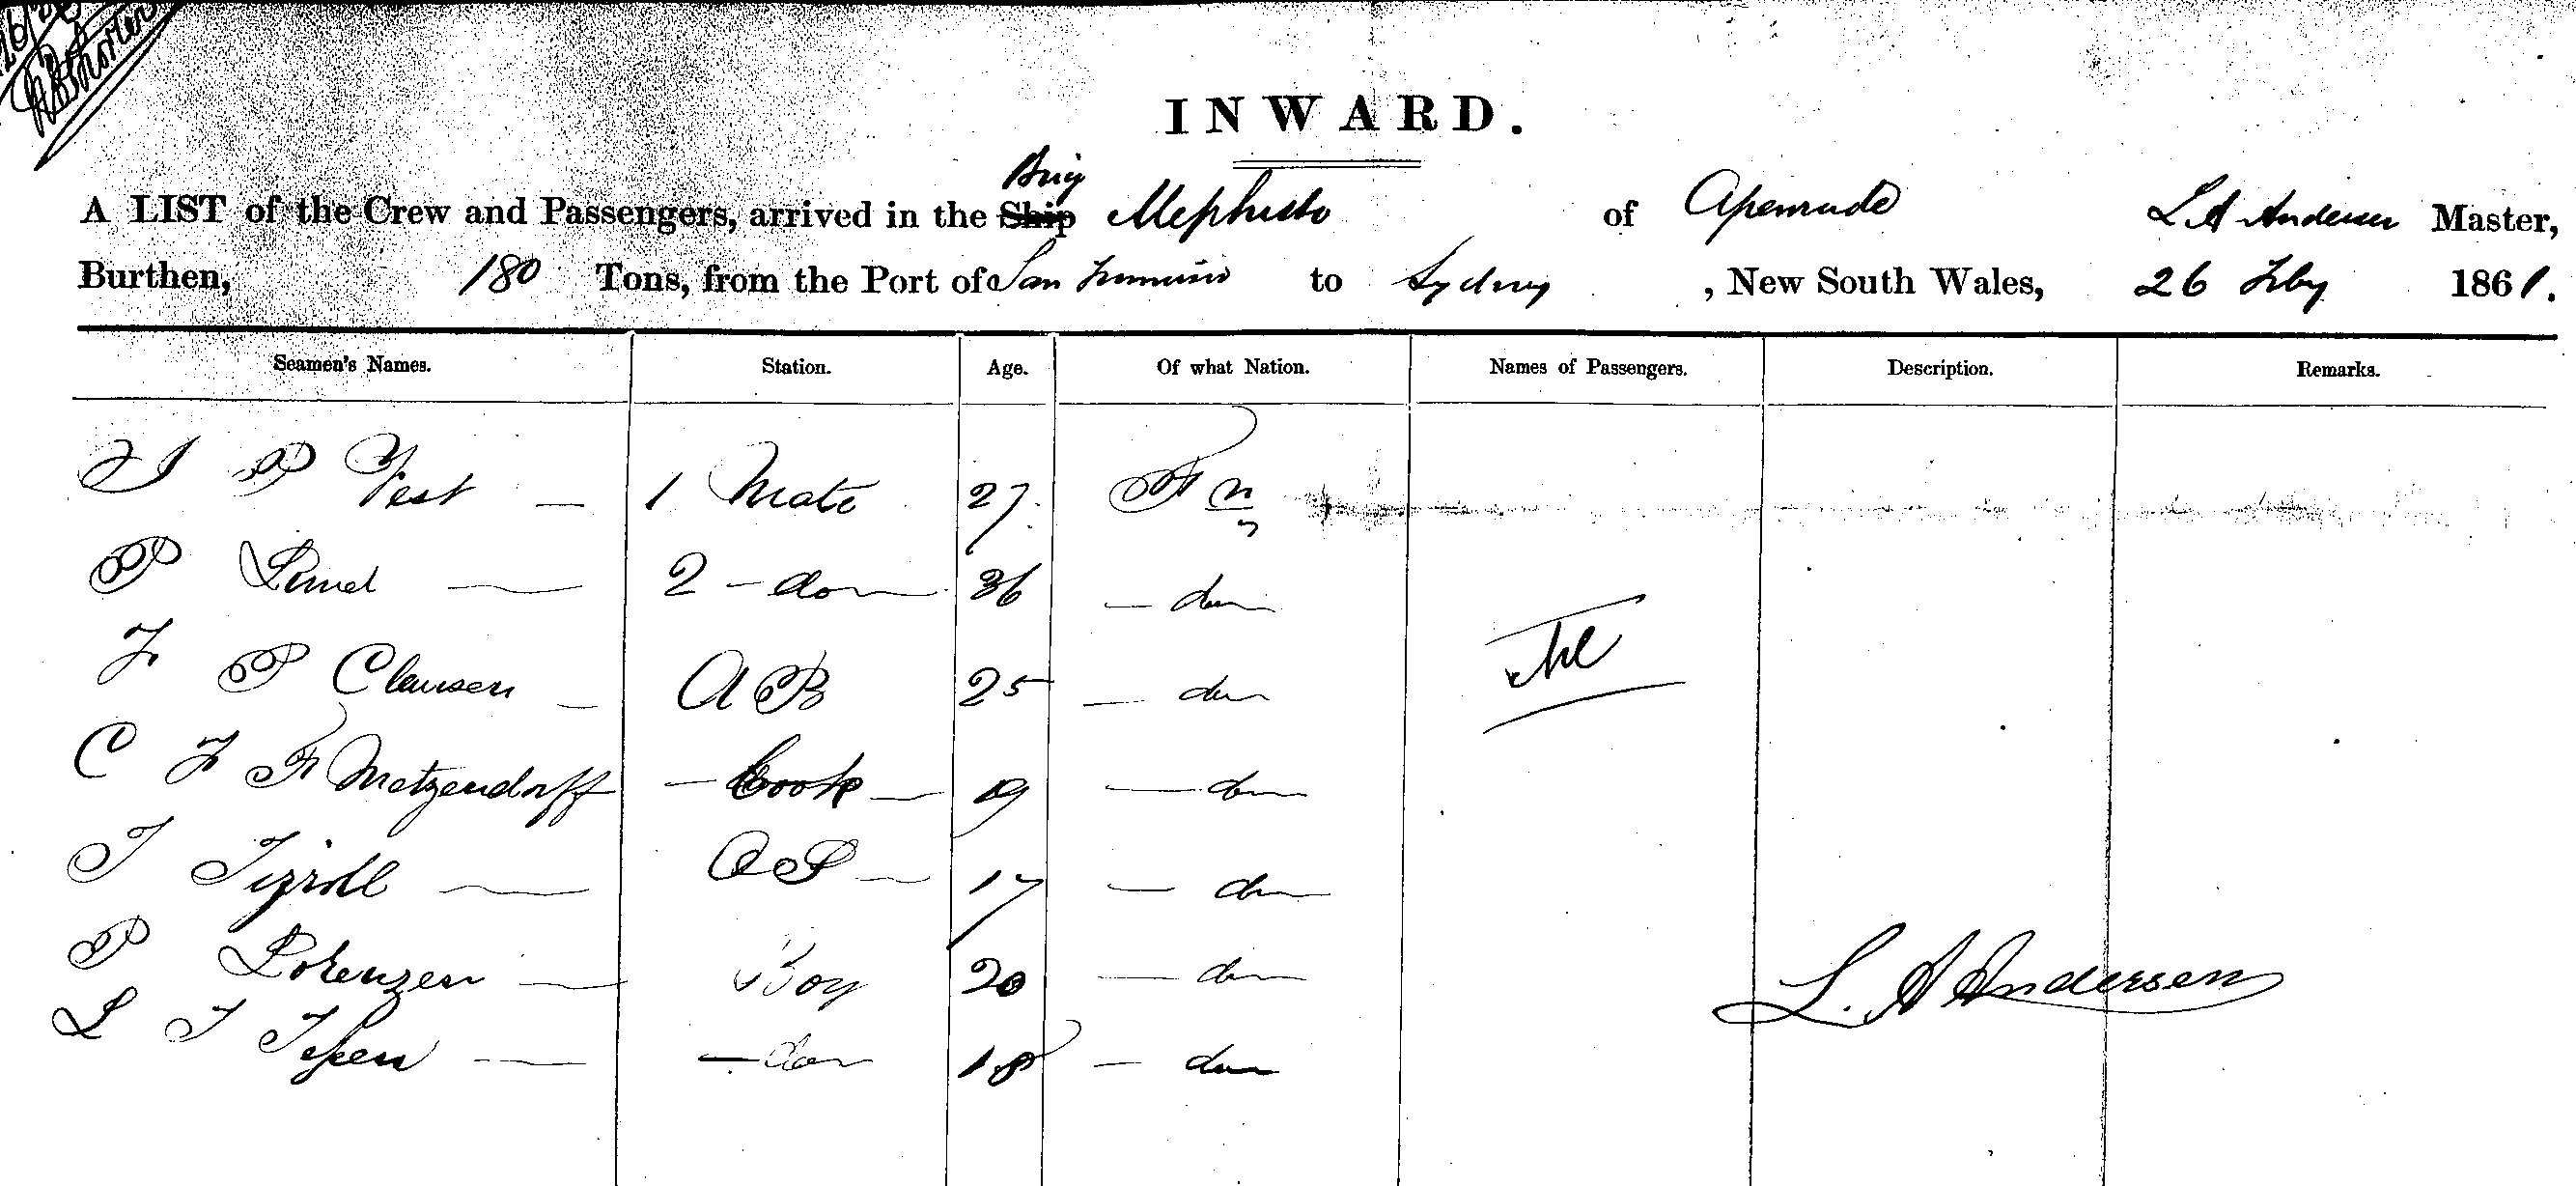 INWARD.
Brig
A LIST of the Crew and Passengers, arrived in the Ship Mephisto of Apenrade L A Andersen Master,
Burthen, 180 Tons, from the Port of San Francisco to Sydney, New South Wales, 26 Feby 1861.
Seamen's Names. Station. Age. Of what Nation. Names of Passengers. Description. Remarks.
P Fest — 1 Mate 27
P Lund — 2 — do — 36 — do
J P Clausen — A B 25 — do
C J F Metzendorff — Cook — 19 — do
J — O S — 17 — do
P Lorenzen — Boy 20 — do
L. A Andersen
L J — do 18 — do